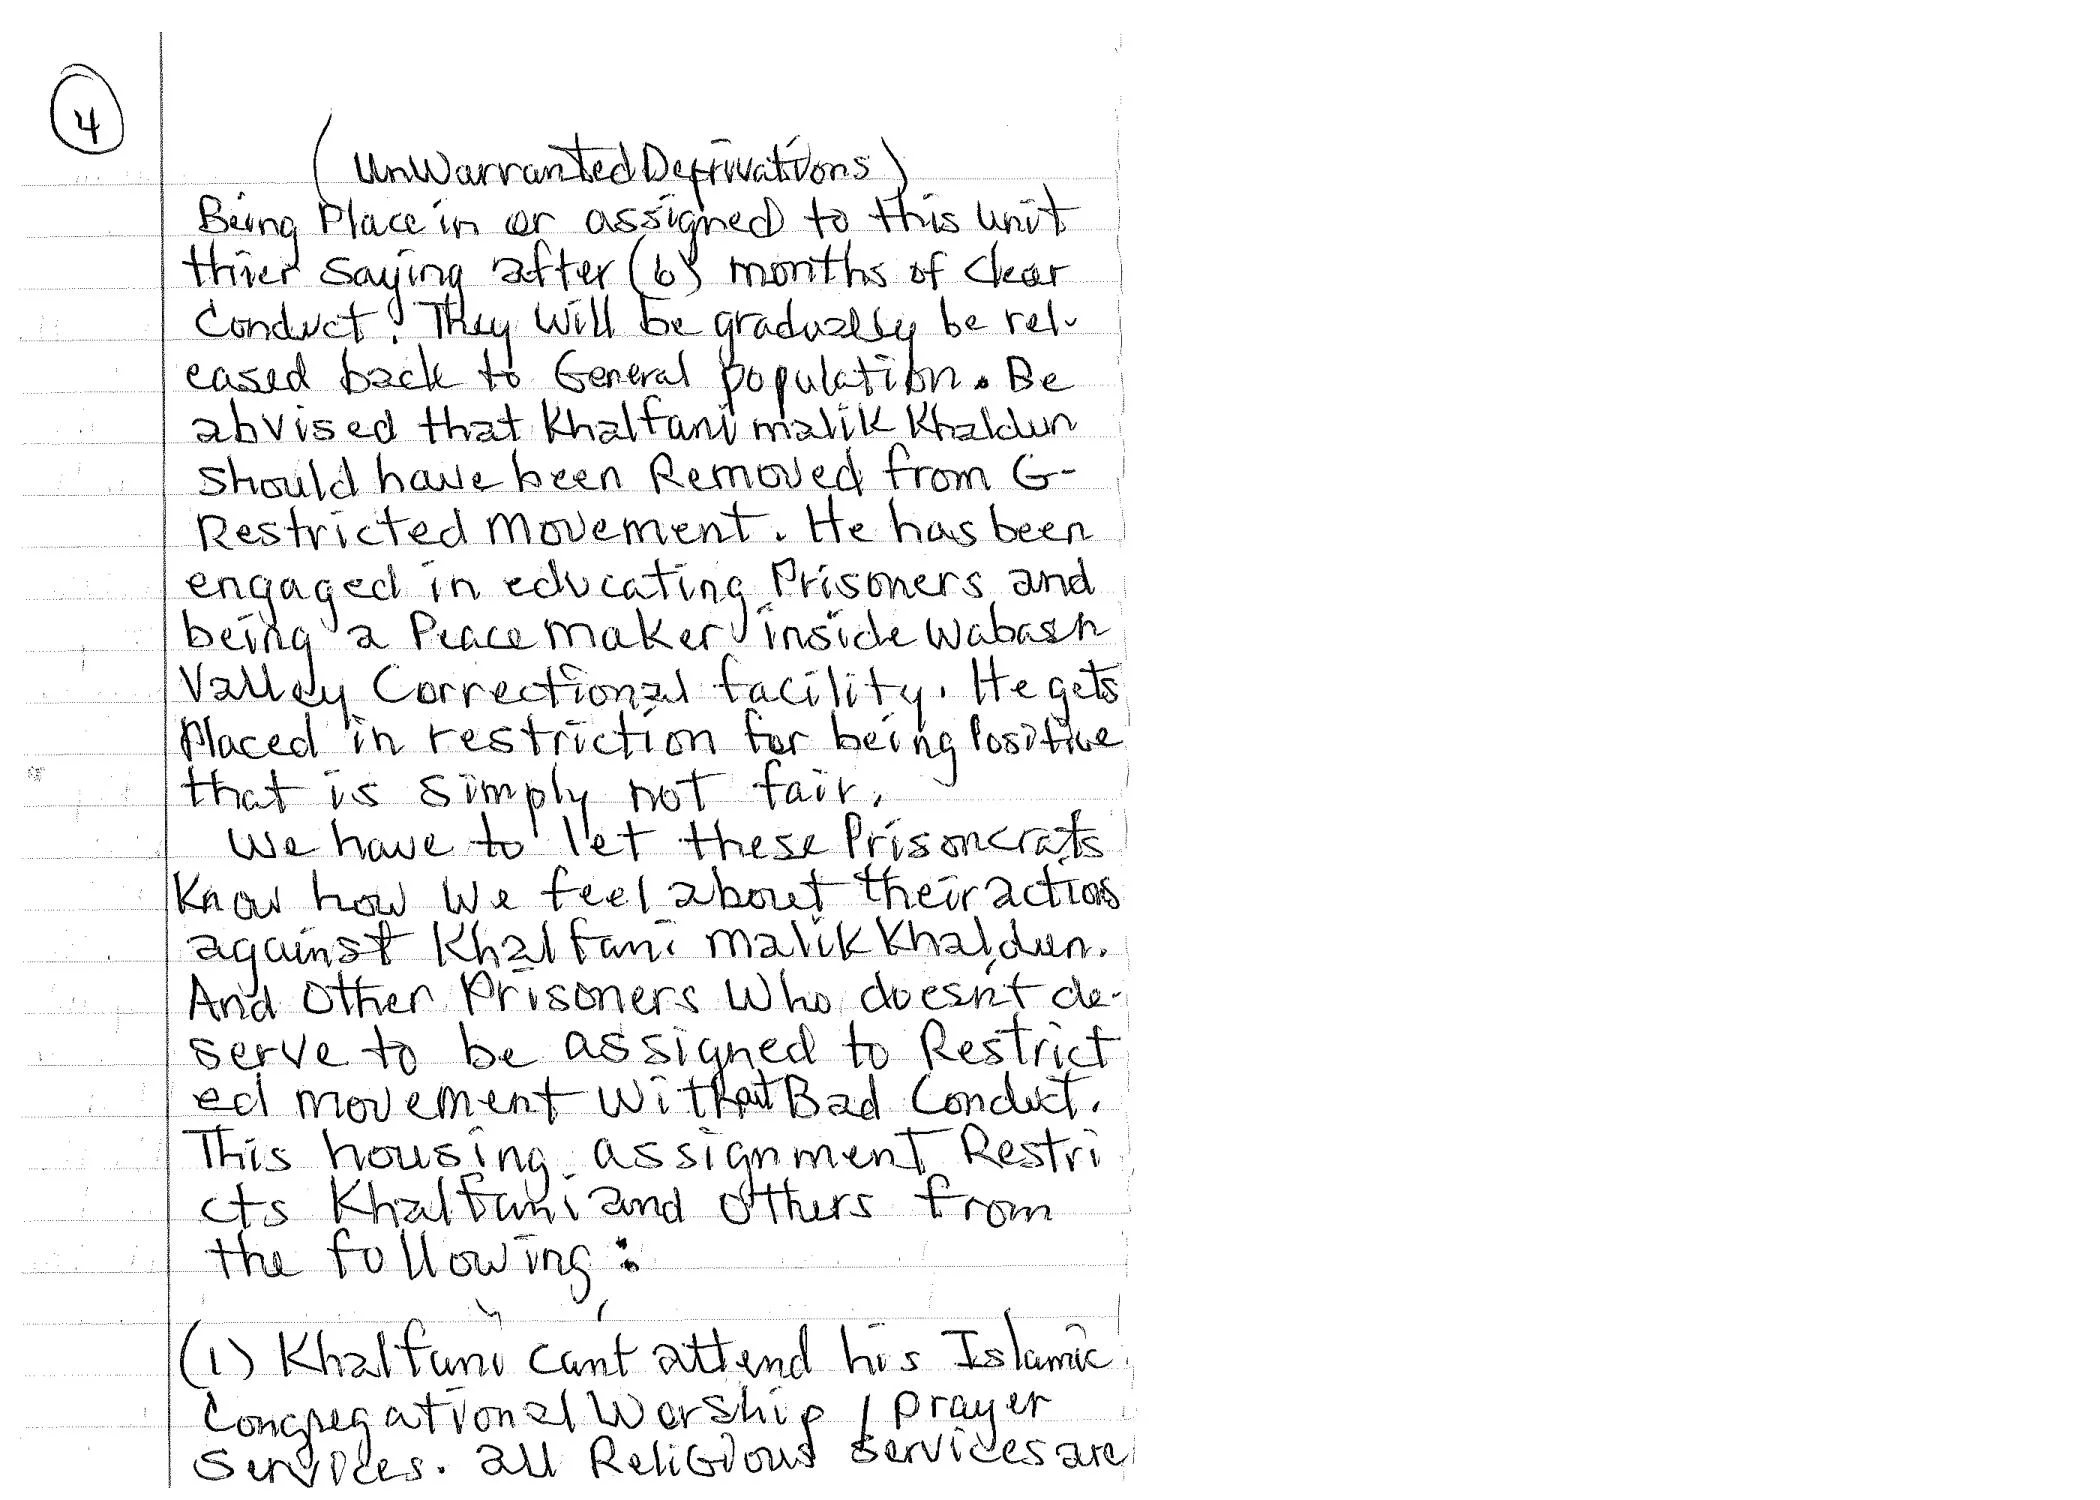 4
(UnWarranted Deprivations)
Being Place in or assigned to this unit
thier saying after (6) months of clear
Conduct. They will be gradually be rel-
eased back to General population. Be
abvised that Khalfani malik Khaldun
should have been Removed from G-
Restricted Movement. He has been
engaged in educating Prisoners and
being a Peace maker inside Wabash
Valley Correctional facility. He gets
Placed in restriction for being Positive
that is simply not fair.
We have to let these Prisoncrats
Know how We feel about their actions
against Khalfani malik Khaldun.
And Other Prisoners Who doesn't de-
serve to be assigned to Restrict
ed movement Without Bad Conduct.
This housing assignment Restri
cts Khalfani and others from
the following:
(1) Khalfani cant attend his Islamic
Congregational Worship / prayer
Services. all Religious services are